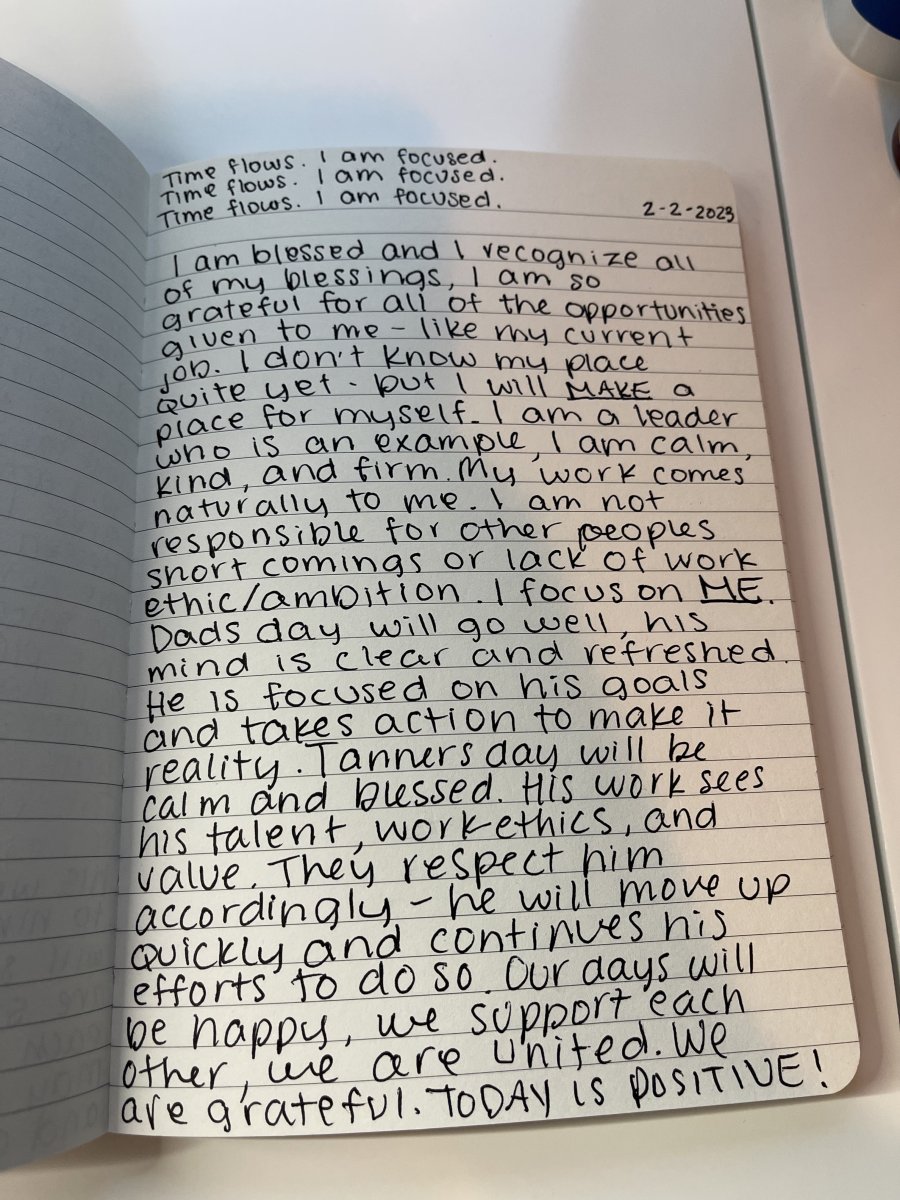 Time flows. I am focused.
Time flows. I am focused.
Time flows. I am focused.
2-2-2023
I am blessed and I recognize all
of my blessings, I am so
grateful for all of the opportunities
given to me - like my current
job. I don't know my place
quite yet - but I will MAKE a
place for myself. I am a leader
who is an example, I am calm,
kind, and firm. My work comes
naturally to me. I am not
responsible for other peoples
short comings or lack of work
ethic/ambition. I focus on ME.
Dads day will go well, his
mind is clear and refreshed.
He is focused on his goals
and takes action to make it
reality. Tanners day will be
calm and blessed. His work sees
his talent, work ethics, and
value. They respect him
accordingly - he will move up
quickly and continues his
efforts to do so. Our days will
be happy, we support each
other, we are united. We
are grateful. TODAY IS POSITIVE!